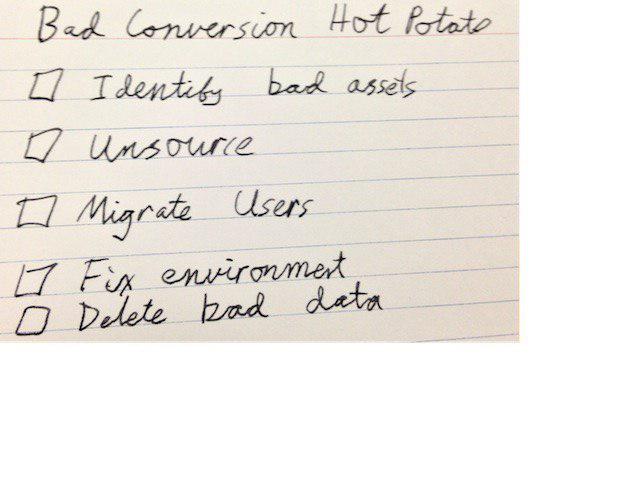 Bad Conversion Hot Potato
Identify bad assets
Unsource
Migrate Users
Fix environment
Delete bad data